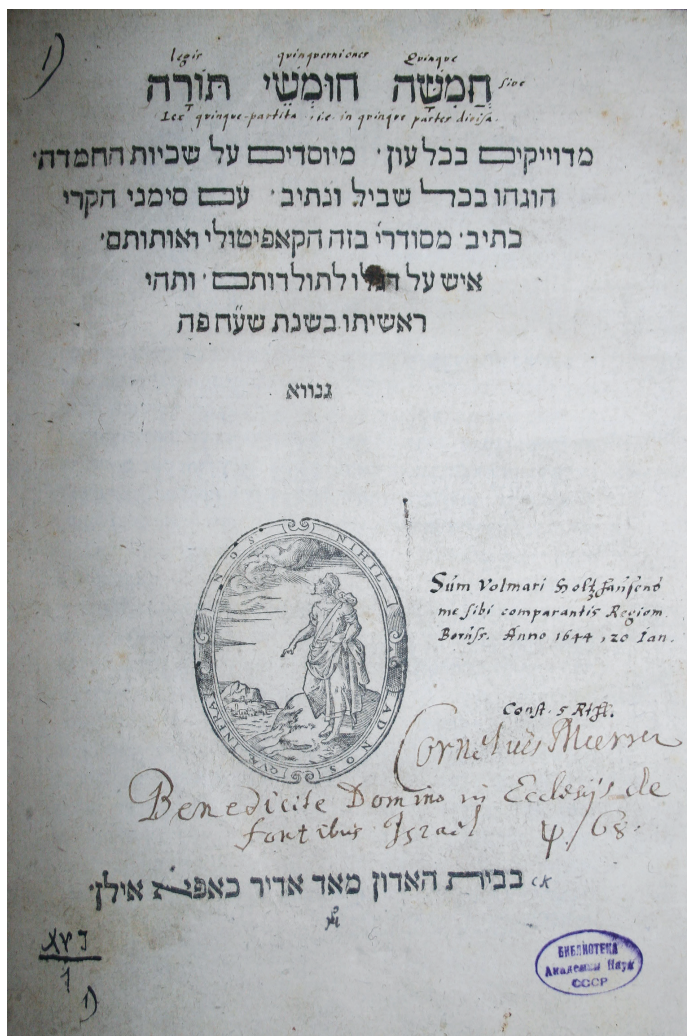 1)
legis quinquerniones Quinque
חֲמִשָּׁה חוּמְשֵׁי תּוֹרָה sive
Lex quinque-partita, i.e. in quinque partes divisa.
מדוייקים בכל עוז· מיוסדים על שכיות החמדה·
הוגהו בכל שביל ונתיב· עם סימני הקרי
כתיב· מסודרי בזה הקאפיטולי ואותותם·
איש על דגלו לתולדותם· ותהי
ראשיתו בשנת שע״ח פה
גנווא
QVÆ INFRA NOS NIHIL AD NOS
Sum Volmari
me sibi comparantis Regiom.
Boruss. Anno 1644, 20 Ian.
Const. 5
Cornelius
Benedicite Domino in Ecclesijs de
fontibus Israel ψ. 68.
בבית האדון מאד אדיר כאפית אילן·
1
1)
БИБЛИОТЕКА
Академии Наук
СССР